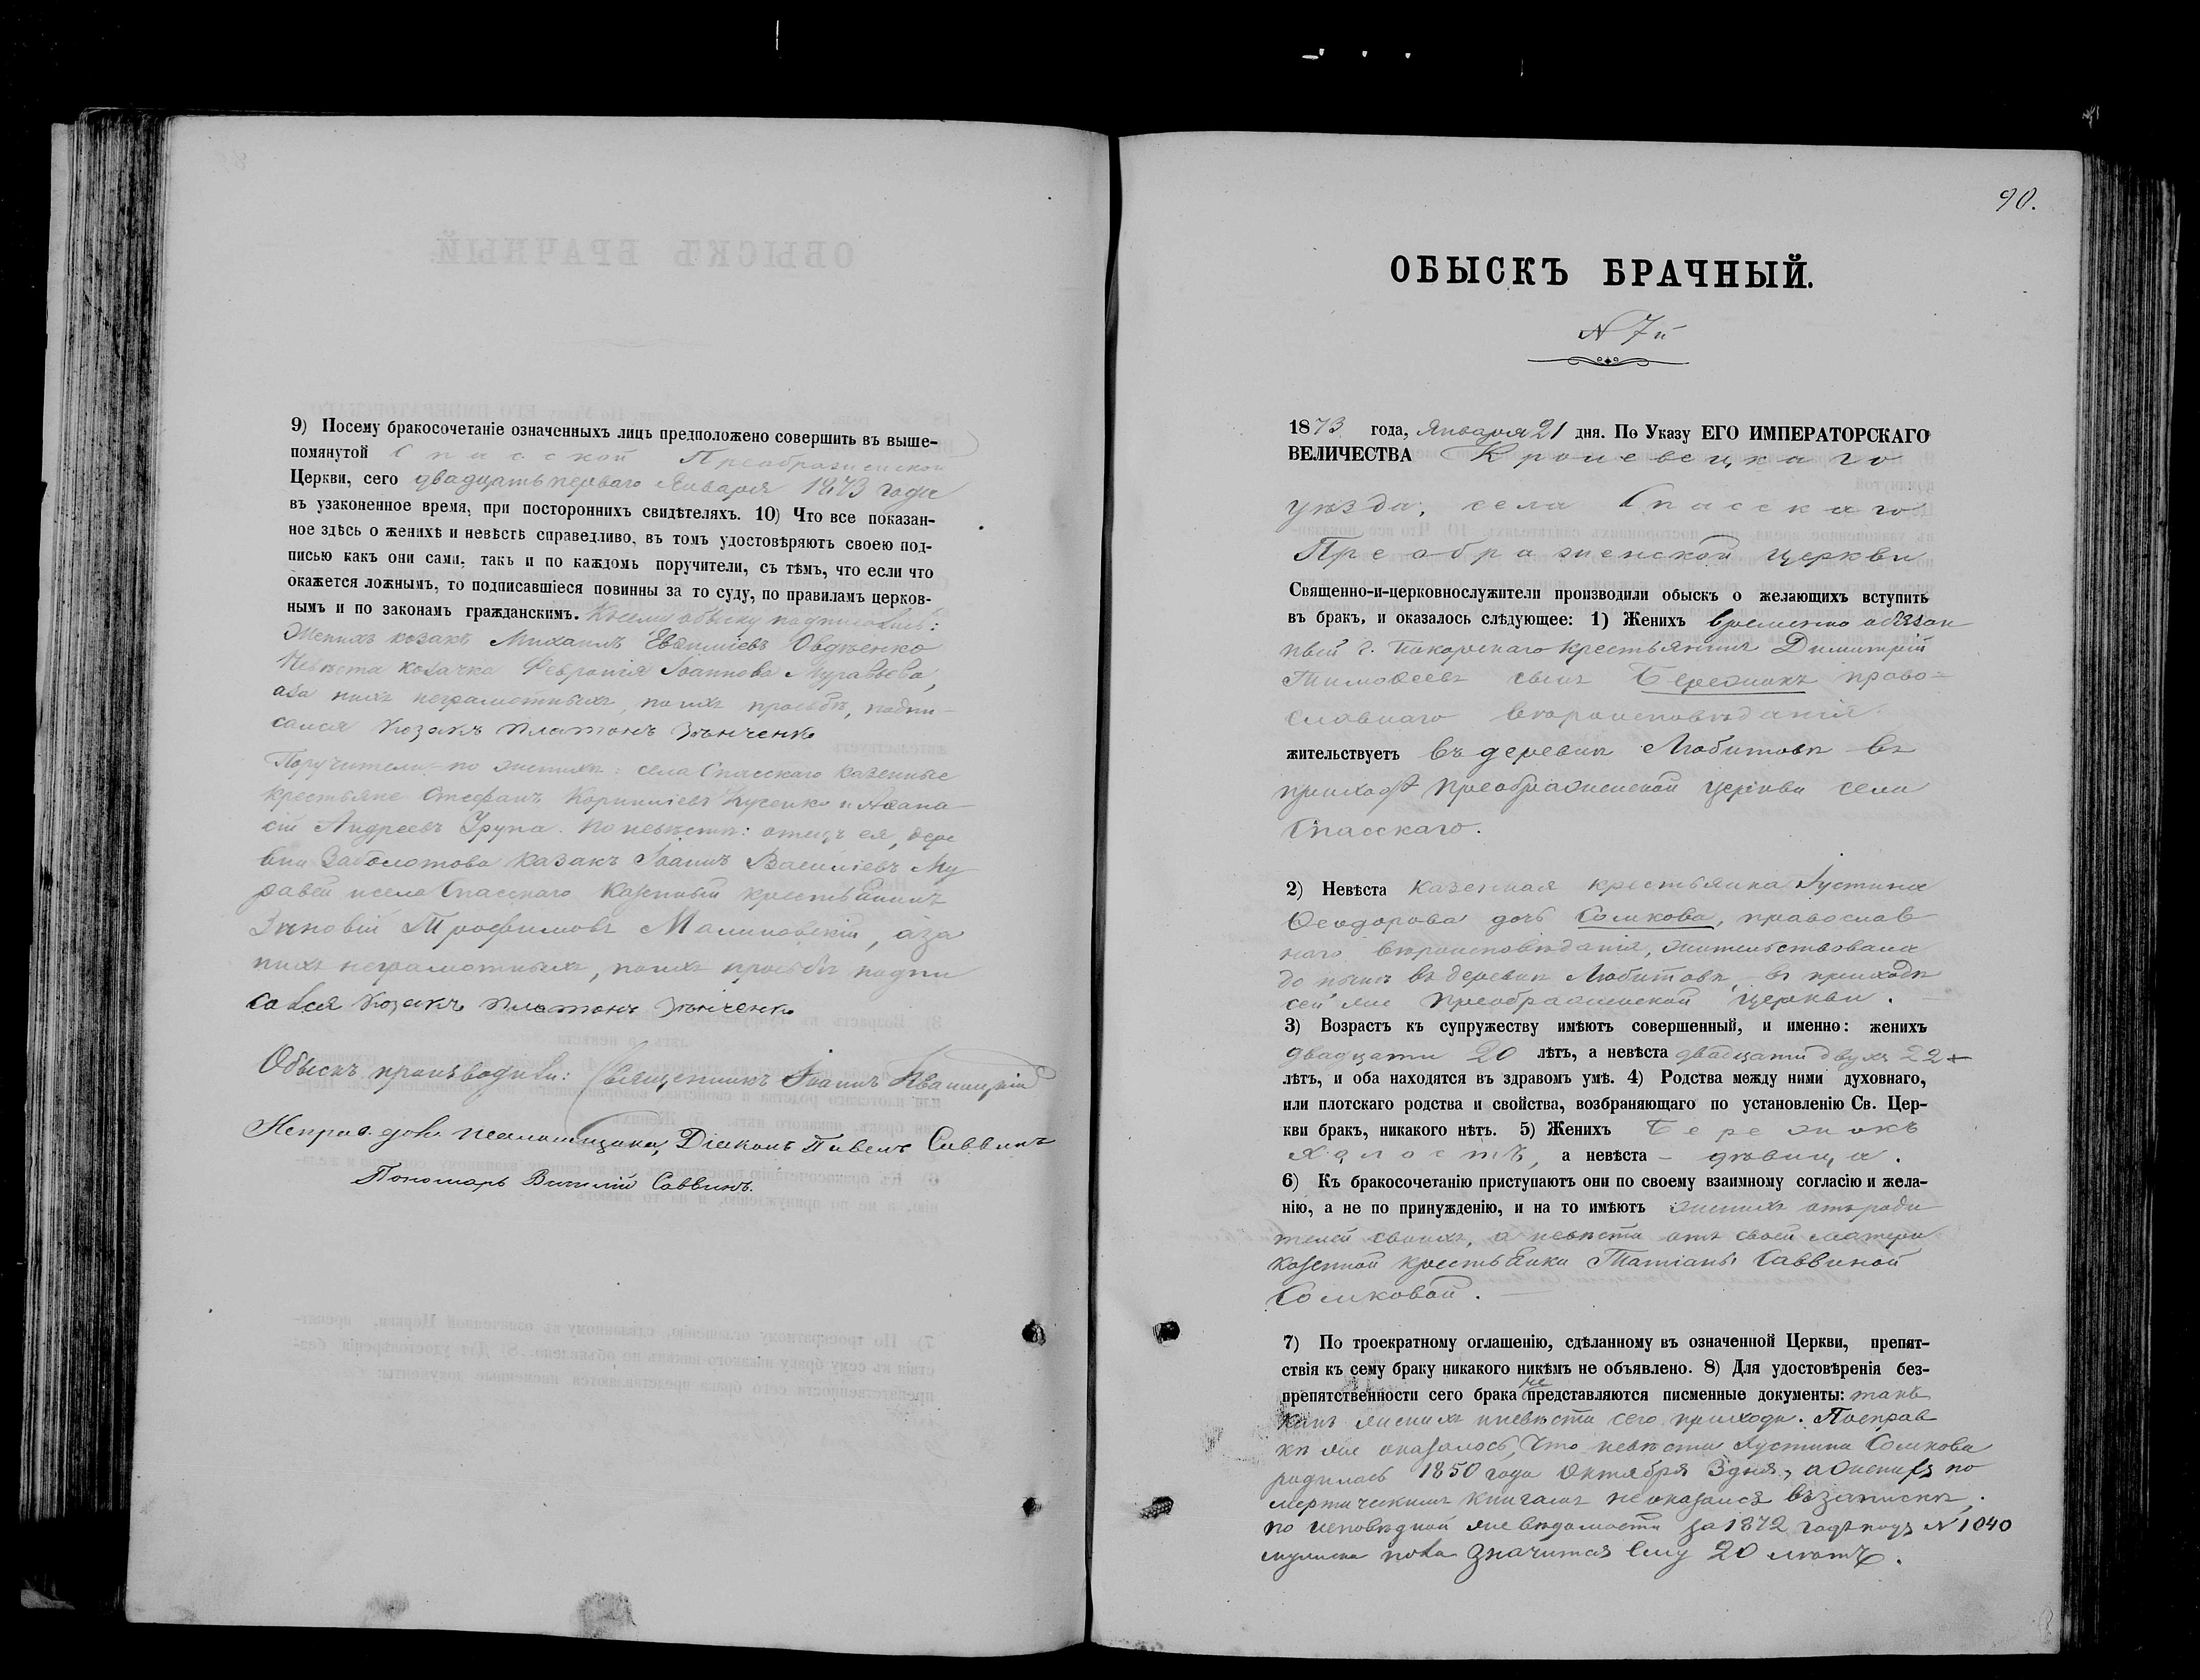 9) Посему бракосочетаніе означенныхъ лицъ предположено совершить въ выше-
помянутой Спасской Преображенской
Церкви, сего двадцать перваго Января 1873 года
въ узаконенное время, при постороннихъ свидѣтеляхъ. 10) Что все показан-
ное здѣсь о женихѣ и невѣстѣ справедливо, въ томъ удостовѣряютъ своею под-
писью какъ они сами, такъ и по каждомъ поручители, съ тѣмъ, что если что
окажется ложнымъ, то подписавшіеся повинны за то суду, по правиламъ церков-
нымъ и по законамъ гражданскимъ. К сему обыску подписались:
Женихъ козакъ Михаилъ Евѳиміевъ Овдѣенко
Невѣста козачка Февронія Іоаннова Муравьева,
а за нихъ неграмотныхъ, по ихъ просьбѣ, подпи-
сался Козакъ Платонъ Зѣнченко
Поручители по женихѣ: села Спасскаго казенные
крестьяне Стефанъ Корниліевъ и Аѳана-
сій Андреевъ Хрупа. По невѣстѣ: отецъ ея, дере
вни Заболотова казакъ Іоаннъ Василіевъ Му
равей и села Спасскаго Казенный крестьянинъ
Зѣновій Трофимовъ Малиновскій, а за
нихъ неграмотныхъ, по ихъ просьбѣ подпи
сался Козакъ Платонъ Зѣнченко
Обыскъ производили: Священникъ Іоаннъ
Исправ. долж. псаломщика, Діаконъ Павелъ Саввинъ
Пономарь Василій Саввинъ.
90.
ОБЫСКЪ БРАЧНЫЙ.
N 7й
1873 года, Января 21 дня. По Указу ЕГО ИМПЕРАТОРСКАГО
ВЕЛИЧЕСТВА Кролевецкаго
уѣзда, села Спасскаго
Преображенской церкви
Священно-и-церковнослужители производили обыскъ о желающихъ вступить
въ бракъ, и оказалось слѣдующее: 1) Женихъ временно обязан
ный г. крестьянинъ Димитрій
Тимоѳеевъ сынъ Бережокъ право-
славнаго вѣроисповѣданія
жительствуетъ въ деревнѣ Любитовѣ въ
приходѣ Преображенской церкви села
Спасскаго.
2) Невѣста казенная крестьянка Іустина
Ѳеодорова дочь Сомкова, православ
наго вѣроисповѣданія, жительствовала
до нынѣ въ деревнѣ Любитовѣ, въ приходѣ
сей же Преображенской церкви.
3) Возрастъ къ супружеству имѣютъ совершенный, и именно: женихъ
двадцати 20 лѣтъ, а невѣста двадцати двухъ 22
лѣтъ, и оба находятся въ здравомъ умѣ. 4) Родства между ними духовнаго,
или плотскаго родства и свойства, возбраняющаго по установленію Св. Цер-
кви бракъ, никакого нѣтъ. 5) Женихъ Бережокъ
холостъ, а невѣста - дѣвица.
6) Къ бракосочетанію приступаютъ они по своему взаимному согласію и жела-
нію, а не по принужденію, и на то имѣютъ женихъ отъ роди
телей своихъ, а невѣста отъ своей матери
казенной крестьянки Татіаны Саввиной
Сомковой.
7) По троекратному оглашенію, сдѣланному въ означенной Церкви, препят-
ствія къ сему браку никакого никѣмъ не объявлено. 8) Для удостовѣренія без-
препятственности сего брака не представляются писменные документы: такъ
какъ женихъ и невѣста сего прихода. По справ
кѣ же оказалось, что невѣста Іустина Сомкова
родилась 1850 года Октября 3 дня, а женихъ по
метрическимъ книгамъ не оказался въ запискѣ,
по исповѣдной же вѣдомости за 1872 годъ подъ N 1040
мужеска пола значится ему 20 лѣтъ.